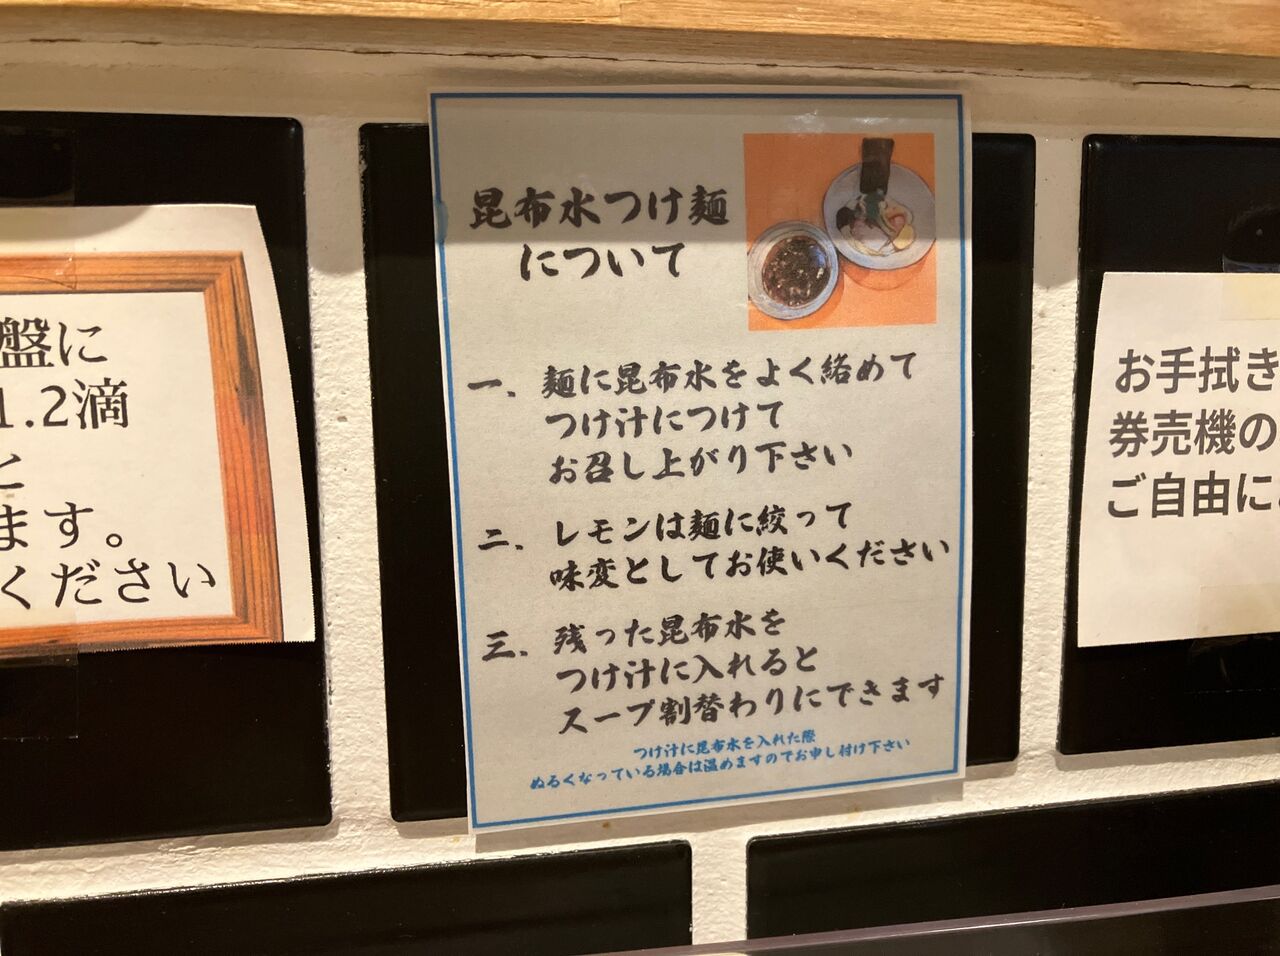 昆布水つけ麺
について
一、麺に昆布水をよく絡めて
つけ汁につけて
お召し上がり下さい
二、レモンは麺に絞って
味変としてお使いください
三、残った昆布水を
つけ汁に入れると
スープ割替わりにできます
つけ汁に昆布水を入れた際
ぬるくなっている場合は温めますのでお申し付け下さい
盤に
1.2滴
と
ます。
ください
お手拭き
券売機の
ご自由に